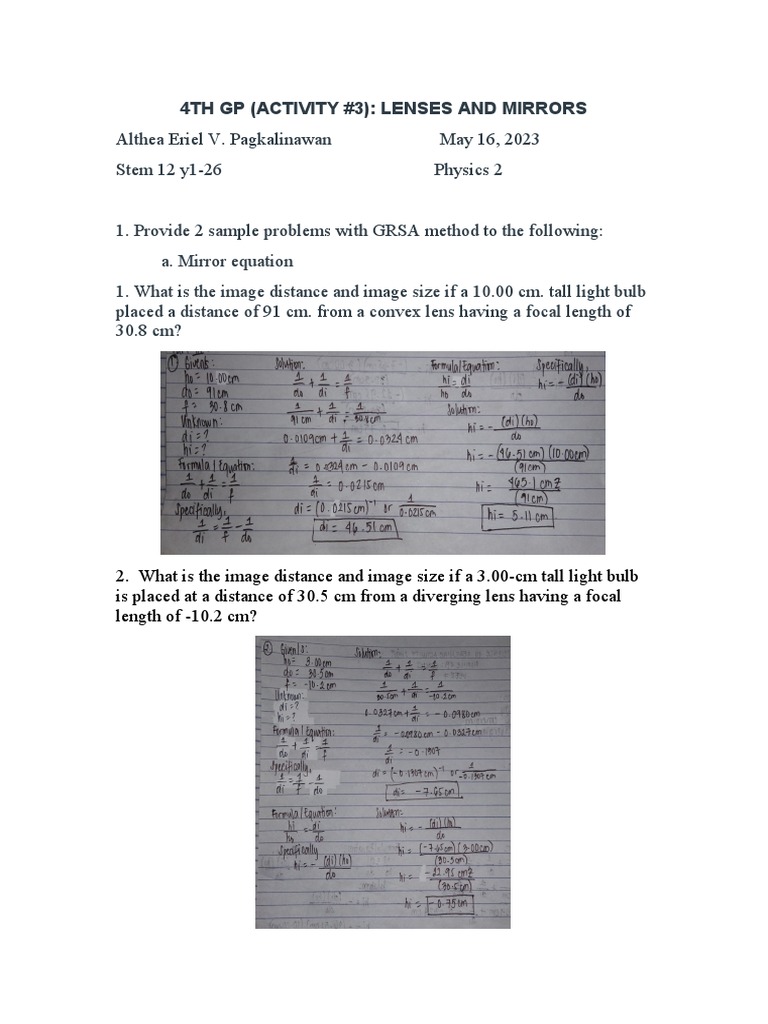 4TH GP (ACTIVITY #3): LENSES AND MIRRORS
Althea Eriel V. Pagkalinawan May 16, 2023
Stem 12 y1-26 Physics 2
1. Provide 2 sample problems with GRSA method to the following:
a. Mirror equation
1. What is the image distance and image size if a 10.00 cm. tall light bulb
placed a distance of 91 cm. from a convex lens having a focal length of
30.8 cm?
① Givens:
ho = 10.00cm
do = 91cm
f = 30.8cm
Unknown:
di = ?
hi = ?
Formula | Equation:
1/do + 1/di = 1/f
Specifically,
1/di = 1/f - 1/do
Solution:
1/do + 1/di = 1/f
1/91cm + 1/di = 1/30.8cm
0.0109cm + 1/di = 0.0324cm
1/di = 0.0324cm - 0.0109cm
1/di = 0.0215cm
di = (0.0215cm)⁻¹ or 1/0.0215cm
di = 46.51cm
Formula/Equation:
hi/ho = di/do
Specifically,
hi = - (di)(ho)/do
Solution:
hi = - (di)(ho)/do
hi = - (46.51cm)(10.00cm)/(91cm)
hi = 465.1cm²/(91cm)
hi = 5.11cm
2. What is the image distance and image size if a 3.00-cm tall light bulb
is placed at a distance of 30.5 cm from a diverging lens having a focal
length of -10.2 cm?
②
ho = 3.00cm
do = 30.5cm
f = -10.2cm
Unknown:
di = ?
hi = ?
Formula | Equation:
1/do + 1/di = 1/f
Specifically,
1/di = 1/f - 1/do
Solution:
1/do + 1/di = 1/f
1/30.5cm + 1/di = 1/-10.2cm
0.0327cm + 1/di = -0.0980cm
1/di = -0.0980cm - 0.0327cm
1/di = -0.1307
di = (-0.1307cm)⁻¹ or 1/-0.1307cm
di = -7.65cm
Formula/Equation:
hi/ho = di/do
Specifically
hi = - (di)(ho)/do
Solution:
hi = - (di)(ho)/do
hi = (-7.65cm)(3.00cm)/(30.5cm)
hi = -22.95cm²/(30.5cm)
hi = -0.75cm